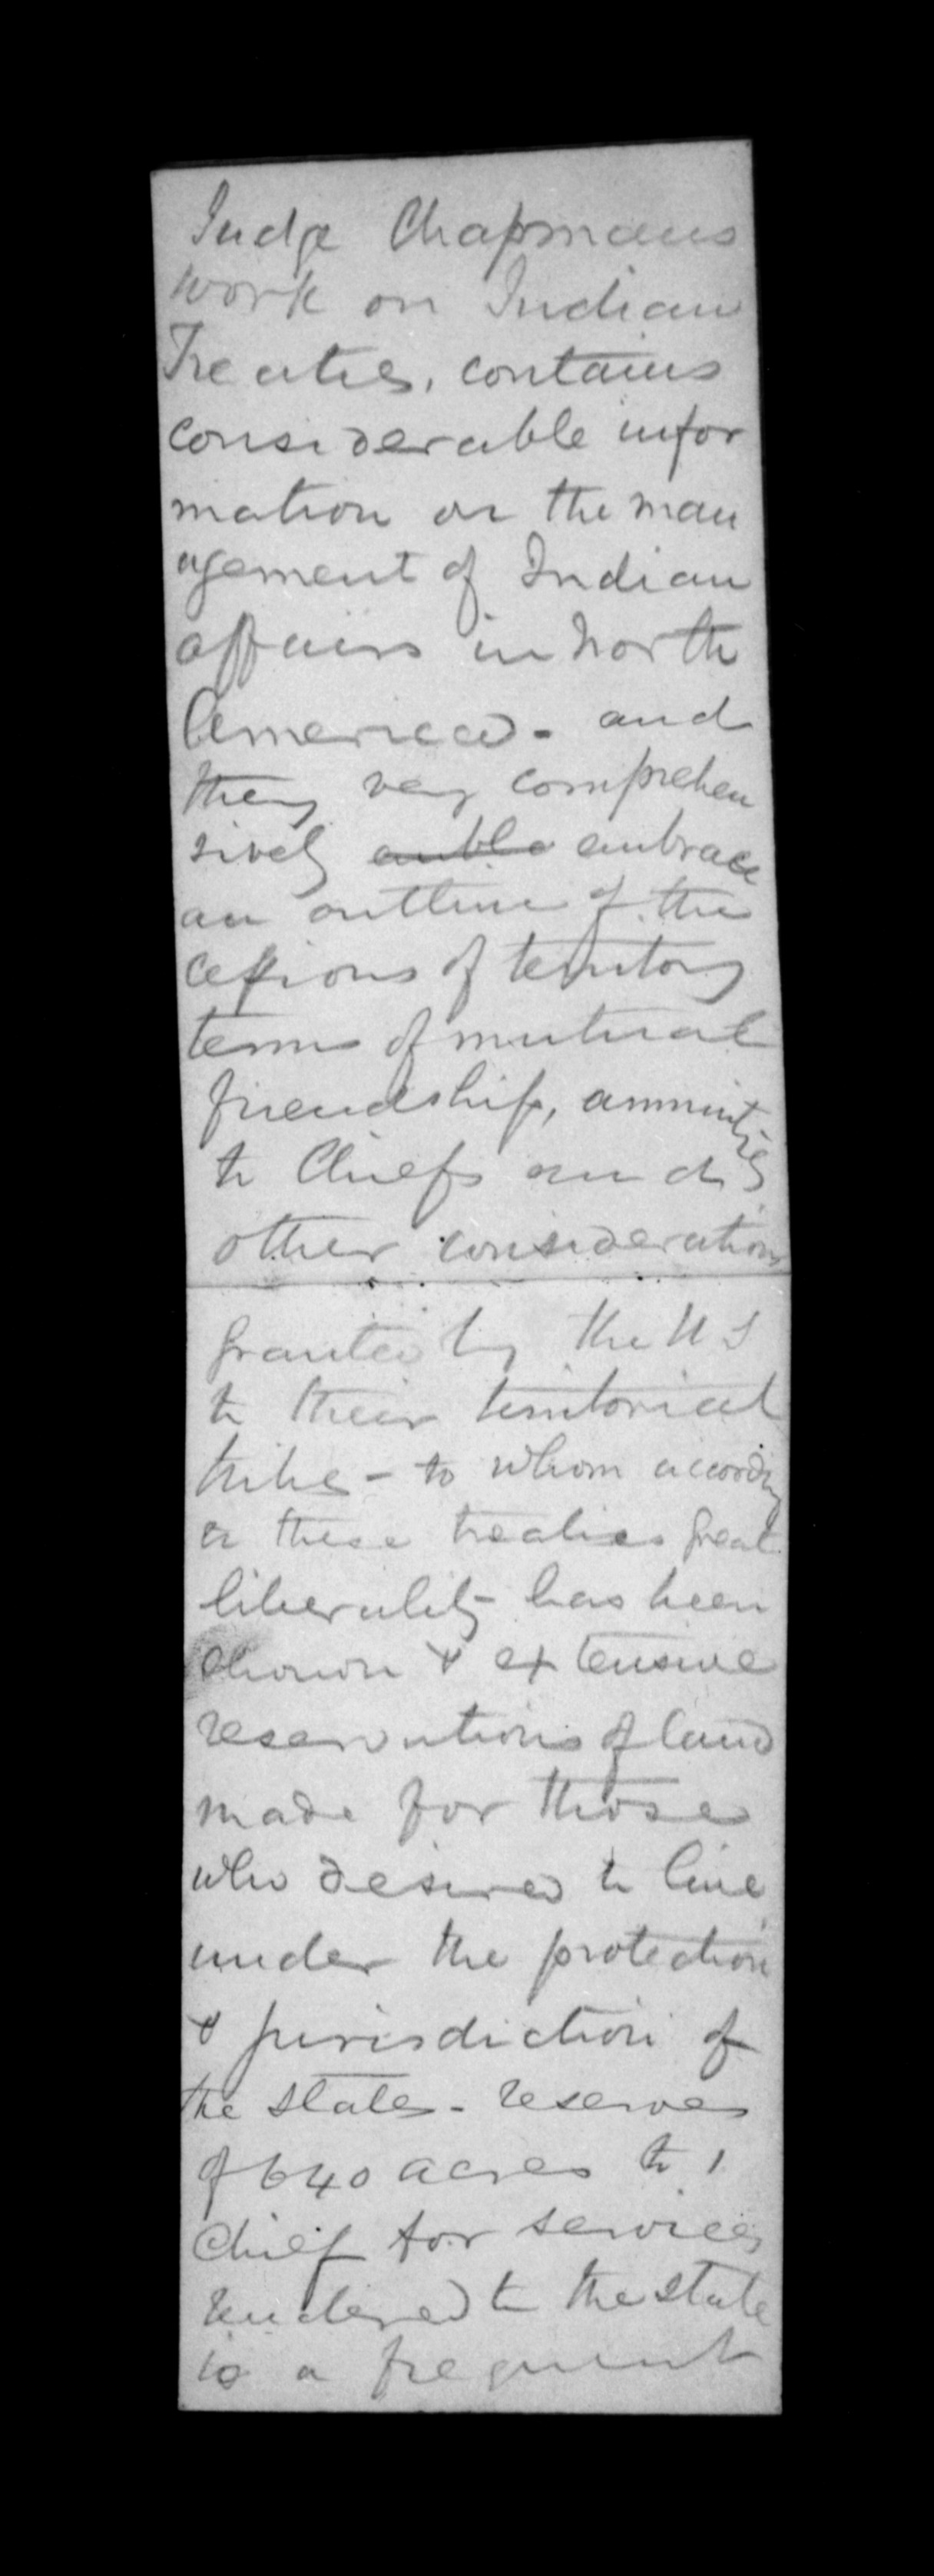 Judge Chapmans
work on Indian
Treaties, contains
considerable infor
mation on the man
agement of Indian
affairs in North
America - and
they very comprehen
sively embrace
an outline of the
cessions of territory
terms of mutual
friendship, annuities
to Chiefs and
other considerations
granted by the U S
to their territorial
tribes - to whom according
to these treaties great
liberality has been
shown & extensive
reservations of land
made for those
who desired to live
under the protection
& jurisdiction of
the States - reserves
of 640 acres to 1
Chief for services
rendered to the State
is a frequent